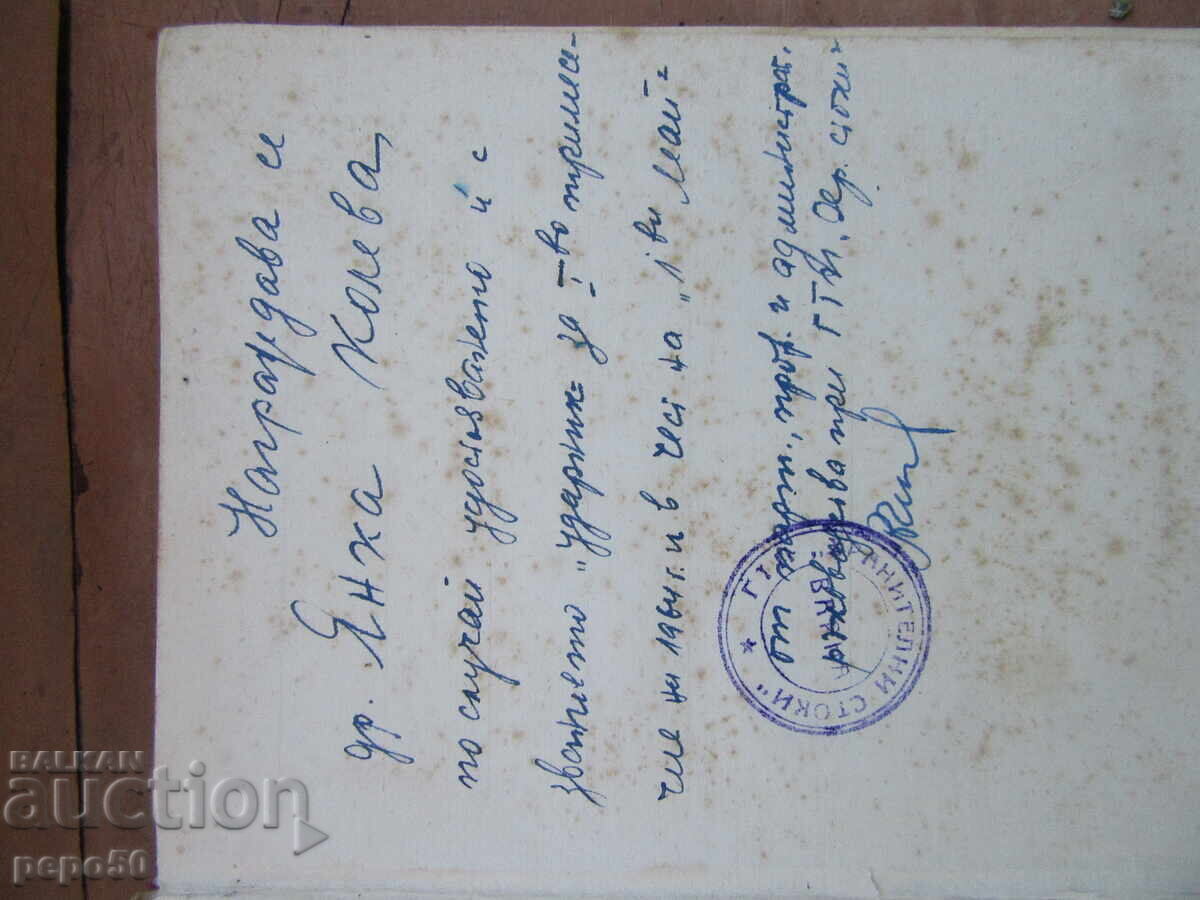 Награждава се
др. Янка Колева,
по случай удостояването ѝ с
званието "Ударник" за I-во тримесе-
чие на 1964 г. и в чест на "1ви Май"
от парт., проф. и администрат.
ръководства при ГТП. Хр. стоки
* ГТП "ХРАНИТЕЛНИ СТОКИ"
ВРАЦА
BALKAN
auction
pepo50